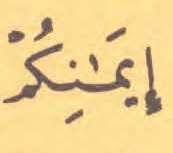 إِيمَـٰنِكُمْ